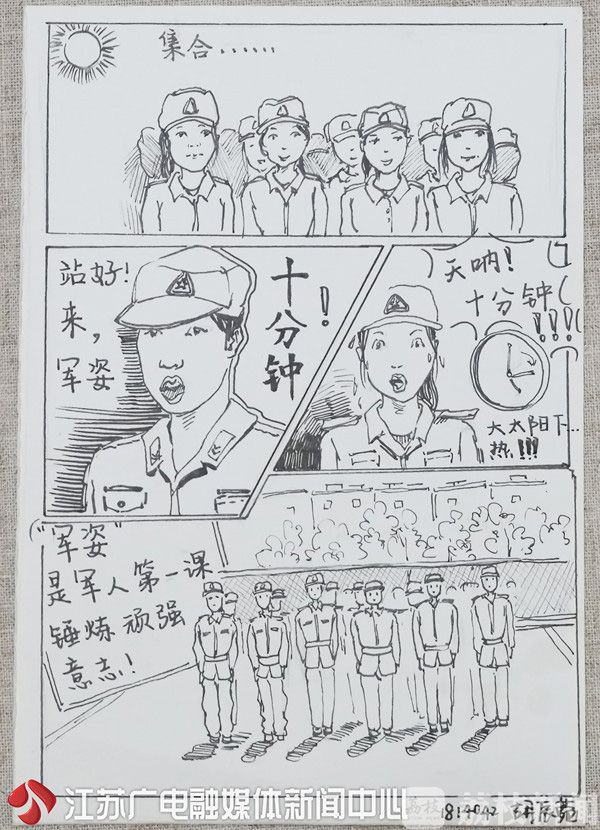 集合......
站好!
来,
军姿
十分钟!
天呐!
十分钟
!!!!
大太阳下...
热!!!
"军姿"
是军人第一课
锤炼顽强
意志!
江苏广电融媒体新闻中心
荔枝新闻